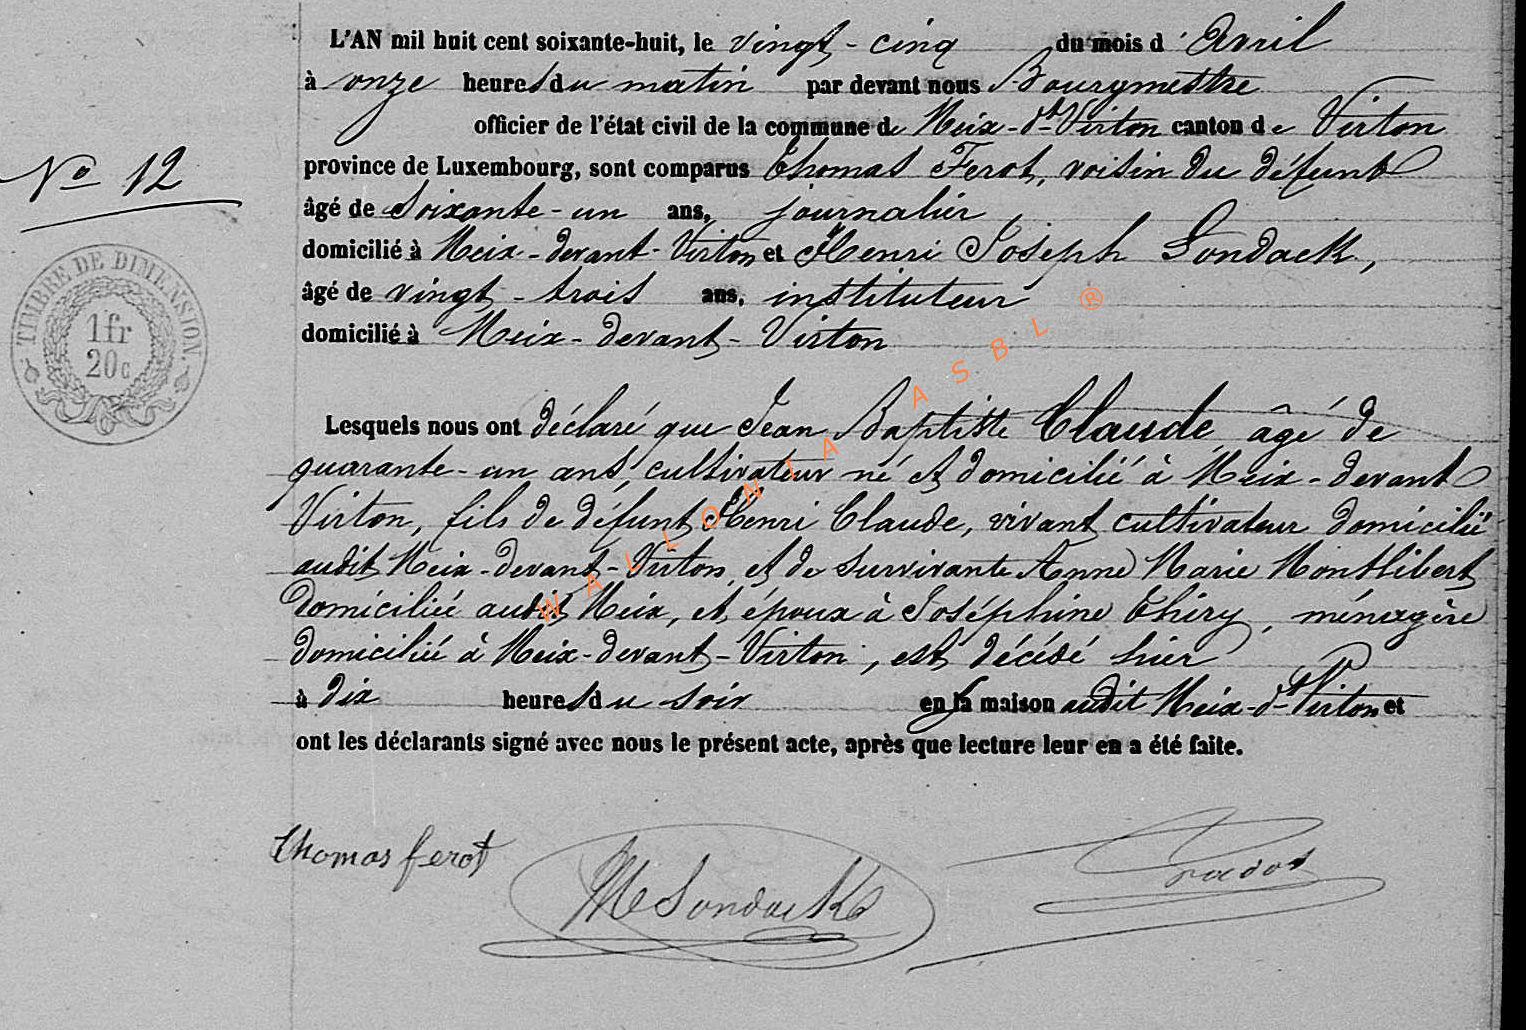 L'AN mil huit cent soixante-huit, le vingt-cinq du mois d'Avril
à onze heures du matin par devant nous Bourgmestre
officier de l'état civil de la commune de Meix-dt-Virton canton de Virton
N° 12
province de Luxembourg, sont comparus Thomas Ferot, voisin du défunt
âgé de soixante-un ans, journalier,
domicilié à Meix-devant-Virton et Henri Joseph Sondack,
âgé de vingt-trois ans, instituteur
domicilié à Meix-devant-Virton
TIMBRE DE DIMENSION.
1fr
20c
Lesquels nous ont déclaré que Jean Baptiste Claude, âgé de
quarante-un ans, cultivateur né et domicilié à Meix-devant
Virton, fils de défunt Henri Claude, vivant cultivateur domicilié
audit Meix-devant-Virton, et de survivante Anne Marie Montlibert
domiciliée audit Meix, et époux à Joséphine Thiry, ménagère
domiciliée à Meix-devant-Virton, est décédé hier
à dix heures du soir en sa maison audit Meix-dt-Virton et
ont les déclarants signé avec nous le présent acte, après que lecture leur en a été faite.
Thomas ferot
Sondack
WALLONIA ASBL ®